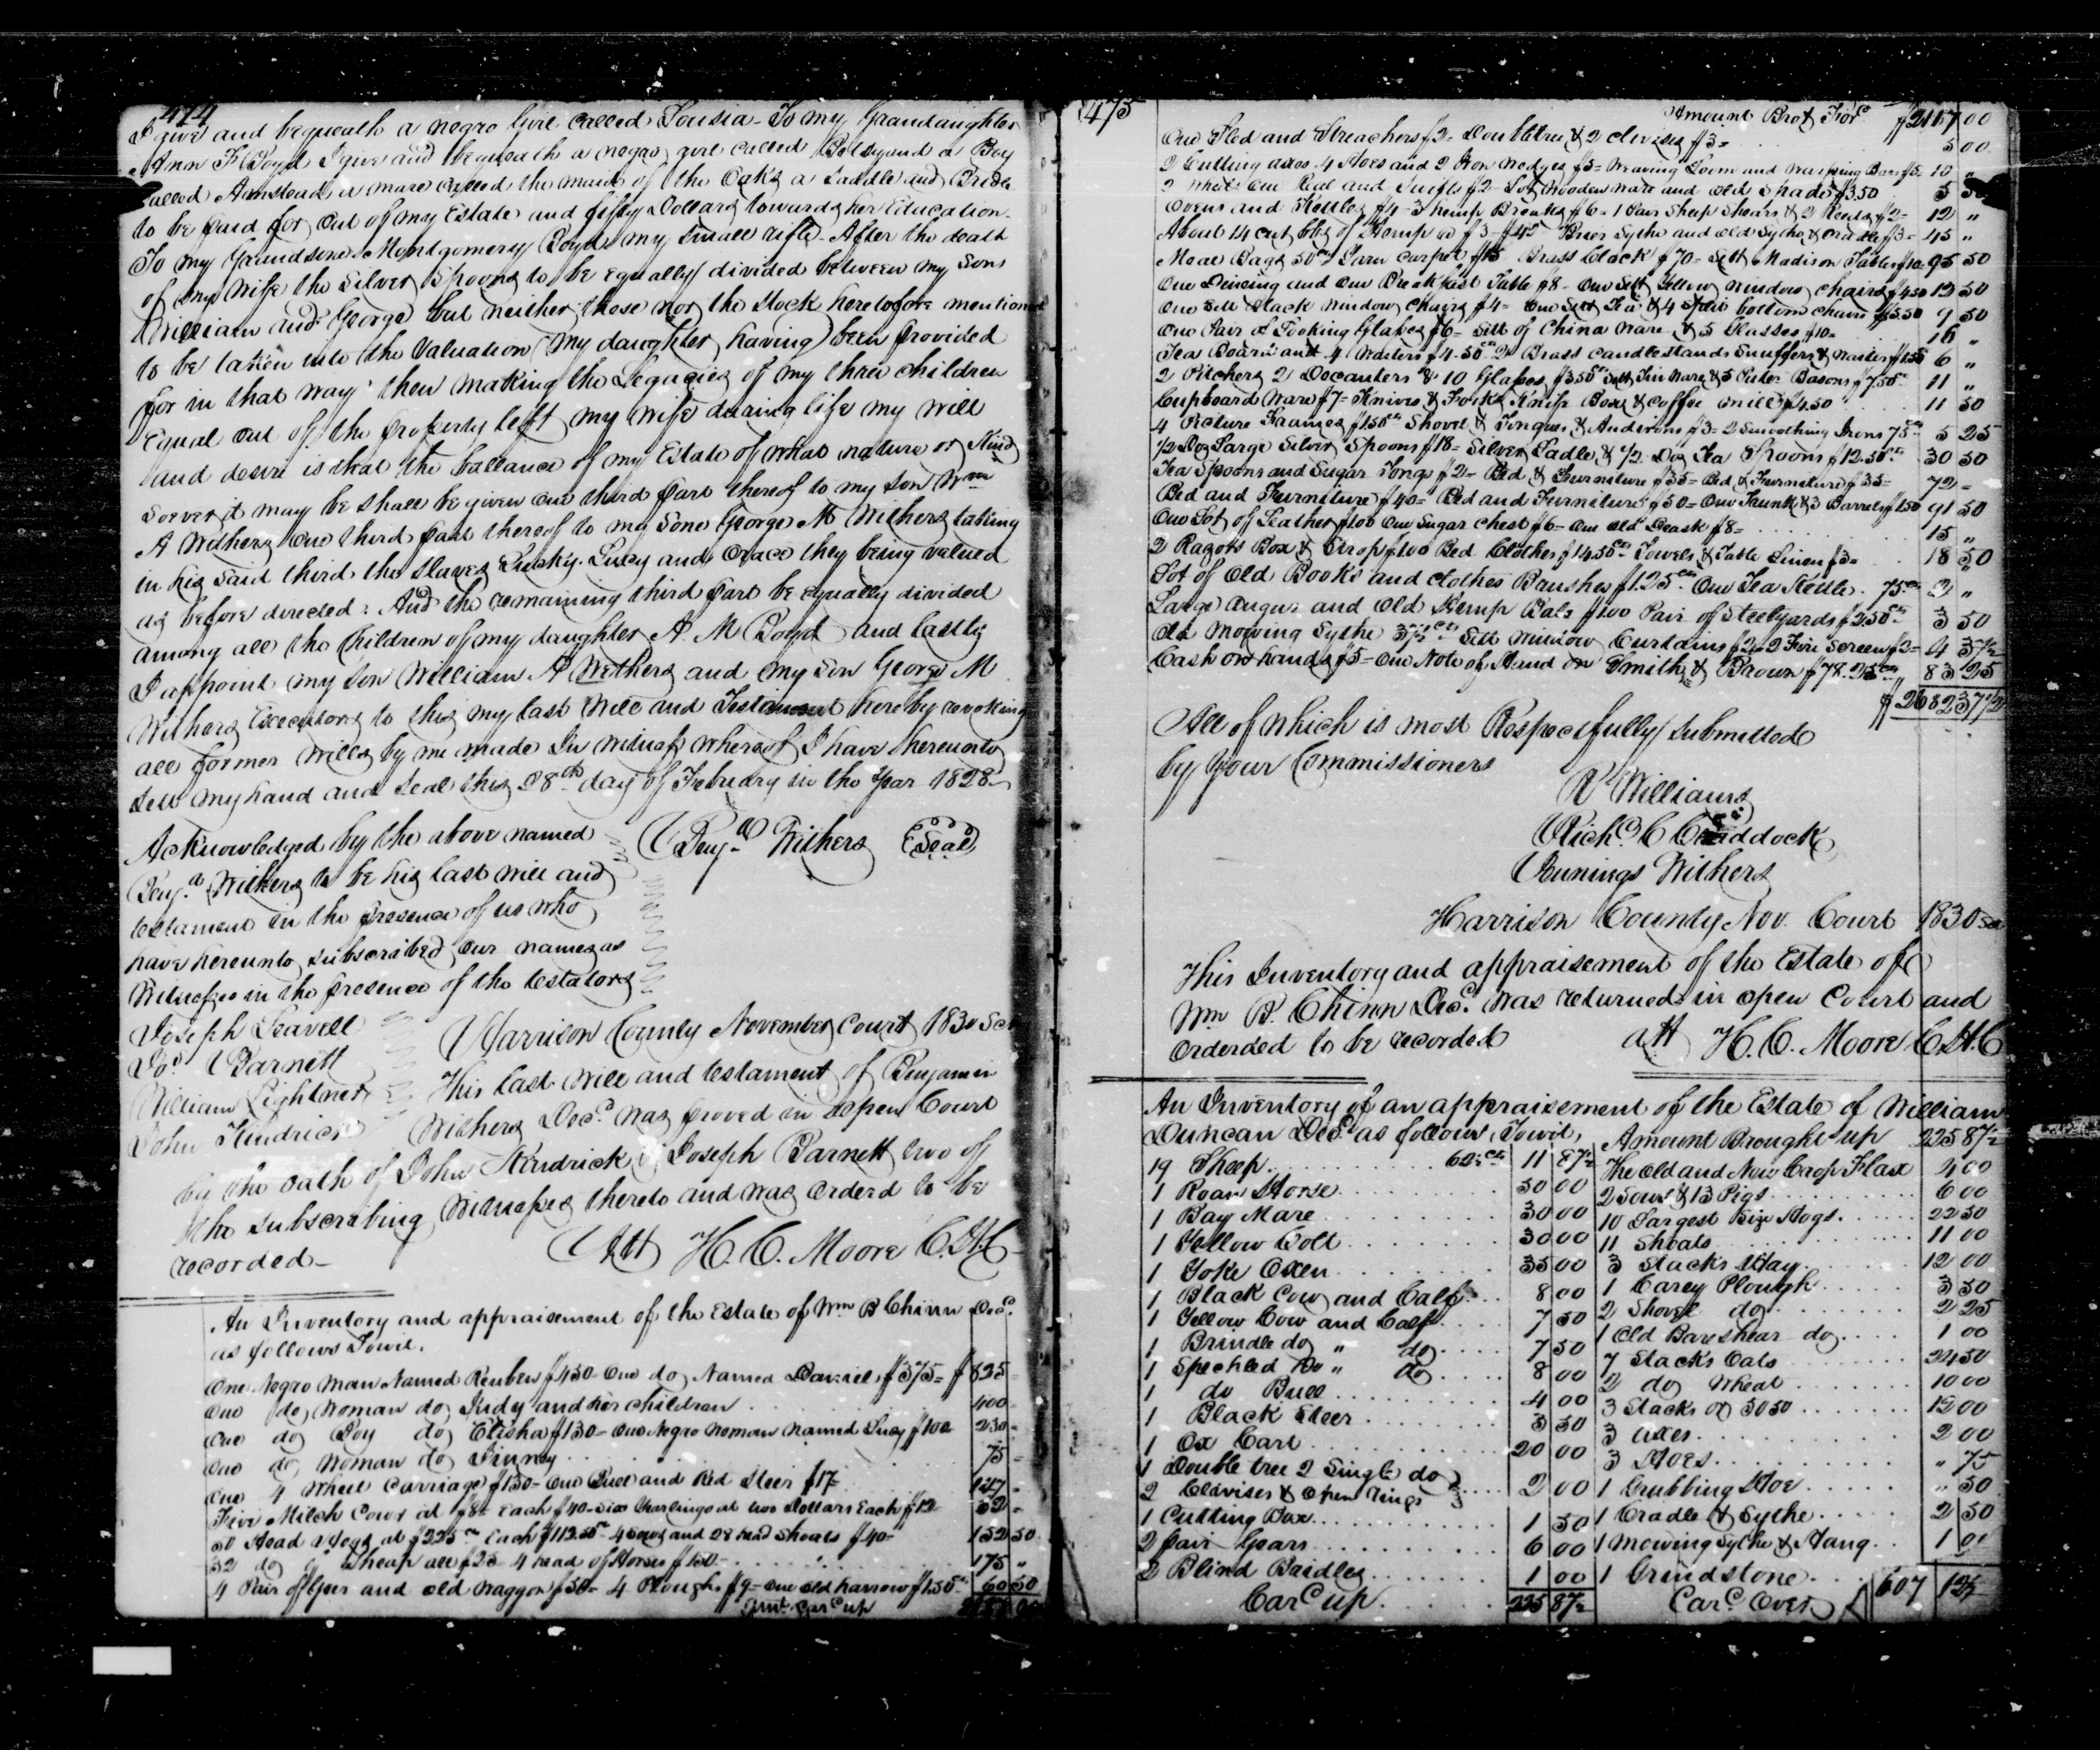 474
I give and bequeath a negro Girl called Louisia - To my Grandaughter
Ann F Boyd I give and bequeath a negro girl called Betsy and a Boy
called Armstead, a mare called the maid of the Oaks a Saddle and Bridle
to be paid for out of my Estate and fifty Dollars towards her Education.
To my Grandsone Montgomery Boyd my small rifle - After the death
of my Wife the Silver Spoons to be equally divided between my Sons
William and George but neither those nor the Stock heretofore mentioned
to be taken into the Valuation (my daughter having been provided
for in that way) then making the Legacies of my three children
Equal out of the property left my wife during life my will
and desire is that the ballance of my Estate of what nature or Kind
soever it may be shall be given one third part thereof to my Son Wm
A Withers one third part thereof to my Sone George M Withers taking
in his said third the slaves Lucy and Grace they being valued
as before directed: And the remaining third part be equally divided
among all the Children of my daughter A. M Boyd and lastly
I appoint my Son William A Withers and my Son George M
Withers Executors to this my last Will and Testament hereby revoking
all former Wills by me made In witness whereof I have hereunto
sett my hand and Seal this 28th day of Febuary in the Year 1828
Acknowledged by the above named
Benj.n Withers Seal
Benj.n Withers to be his last will and
testament in the presence of us who
have hereunto subscribed our names as
Witnesses in the presence of the testators
Joseph Leavell
Jos Barnett
William Lightner
John Kendrick
Harrison County November Court 1830 Sct
This last will and testament of Benjamin
Withers Decd was proved in open Court
by the oath of John Kendrick & Joseph Barnett two of
the subscribing Witnesses thereto and was orderd to be
recorded -
Att H. C. Moore C.H.C
An Inventory and appraisement of the Estate of Wm B Chinn Decd
as follows Towit.
One Negro man Named Reuben $450 - One do Named Daniel $375 = $ 825
One do Woman do Judy and her children 400 -
One do Boy do Elisha $130 - One Negro Woman named Lucy $100 230 -
One do Woman do Jinney 75 -
One 4 Wheel Carriage $130 - One Bull and Red Steer $17 147 -
Five Milch Cows at $8 - Each $40 - Six Yearlings at two Dollars Each $12 52 -
50 Head Hogs at $2.25 cts Each $112.50 - 4 Sows and 28 head Shoats $40 - 152 50
32 do of Sheap all $25 4 head of Horses $150 - 175 "
4 Pair of Gears and old Waggon $50 - 4 Ploughs $9 - One old harrow $1.50 60 50
Amt Card up
475
Amount Brot Ford $2117 00
One Sled and Streachers $2 - Doubletree & 2 clevises $3 - 5 00
2 Cutting axes 4 Hoes and 2 Iron Wedges $5 - Weaving Loom and Warpping Bars $5 10 "
2 Wheels One Real and Swifts $2 - Lot Wooden ware and old Spade $3.50 5 50
Ovens and Kettles $4 - 3 hemp Breaks $6 - 1 Pair Sheep Shears & 2 Reeds $2 - 12 "
About 14 cut of Hemp at $3 - $42 Brier Sythe and old Sythe & Cradle $3 - 45 "
Meal Bags 50cts Yarn Carpet $15 Brass Clock $70 - Sett Madison Tables $10 - 95 50
One Deining and One Breakfast Table $8 - One Sett Yellow window chairs $4.50 12 50
One Sett Black window Chairs $4 - One Sett Tea & 4 Split bottom chairs $5.50 9 50
One Pair of Looking Glasses $6 - Sett of China ware & 5 Glasses $10 - 16 "
Tea Board and 4 Waiters $4.50 cts 2 Brass candlestands Snuffers & Waiter $1.50 6 "
2 Pitchers 2 Decanters & 10 Glasses $3.50 cts Sett Tin Ware & 5 Pewter Basons $7.50 11 "
Cupboard Ware $7 - Knives & Forks Knife Box & Coffee mill $4.50 11 50
4 Picture Frames $1.50 cts Shovel & Tongues & Andirons $3 - 2 Smoothing Irons 75cts 5 25
1/2 Doz Large Silver Spoons $18 - Silver Ladle & 1/2 Doz Tea Spoons $12.50 30 50
Tea Spoons and Sugar Tongs $2 - Bed & Furniture $35 - Bed & Furniture $35 - 72 -
Bed and Furniture $40 - Bed and Furniture $50 - One Trunk & 3 Barrels $1.50 91 50
One Lot of Leather $1.00 One Sugar Chest $6 - One old Deask $8 - 15 "
2 Razors Box & Strop $1.00 Bed Clothes $14.50 cts Towels & Table Linen $3 - 18 50
Lot of Old Books and Clothes Brushes $1.25 cts One Tea Kettle. 75cts 2 "
Large Augur and Old Hemp $1.00 Pair of Steelyards $2.50 3 50
Old Mowing Sythe 37 1/2 cts Sett window Curtains $2 - 2 Fire Screens $2 - 4 37 1/2
Cash on hand $5 - One Note of Hand on Smith & Brown $78.25 cts 83 25
$ 2682 37 1/2
All of which is most Respectfully submitted
by your Commissioners
R Williams
Richd C Craddock
Jennings Withers
Harrison County Nov. Court 1830 Sct
This Inventory and appraisement of the Estate of
Wm B. Chinn Decd. was returned in open Court and
orderded to be recorded
att H. C. Moore C.H.C
An Inventory of an appraisement of the Estate of William
Duncan Decd as follows Towit,
19 Sheep 62 1/2 cts 11 87 1/2
1 Roan Horse 50 00
1 Bay Mare 30 00
1 Yellow Colt 30 00
1 Yoke Oxen 35 00
1 Black Cow and Calf 8 00
1 Yellow Cow and Calf 7 50
1 Brindle do " do 7 50
1 Speckled Do " do 8 00
1 do Bull 4 00
1 Black Steer 3 50
1 Ox Cart 20 00
1 Double tree 2 Single do
2 Clevises & Open Rings 2 00
1 Cutting Box 1 50
2 pair Gears 6 00
2 Blind Bridles 1 00
Card up 225 87 1/2
Amount Brought up 225 87 1/2
The Old and New Crop Flax 4 00
2 Sows & 13 Pigs 6 00
10 Largest Size Hogs 22 50
11 Shoats 11 00
3 Stacks Hay 12 00
1 Carey Plough 3 50
2 Shovel do 2 25
1 Old Barshear do 1 00
7 Stacks Oats 24 50
2 do Wheat 10 00
3 Stacks 12 00
3 Axes 2 00
3 Hoes " 75
1 Grubbing Hoe " 50
1 Cradle & Sythe 2 50
1 Mowing Sythe & Hang 1 00
1 Grindstone
Card Over 607 12 1/2